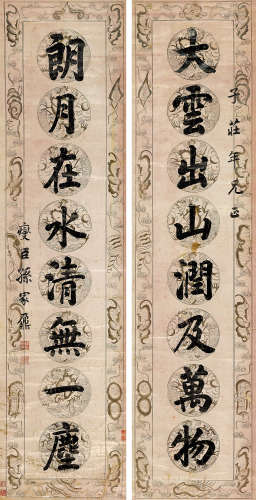 大雲出山潤及萬物
子莊年兄正
朗月在水清無一塵
燮臣孫家鼐